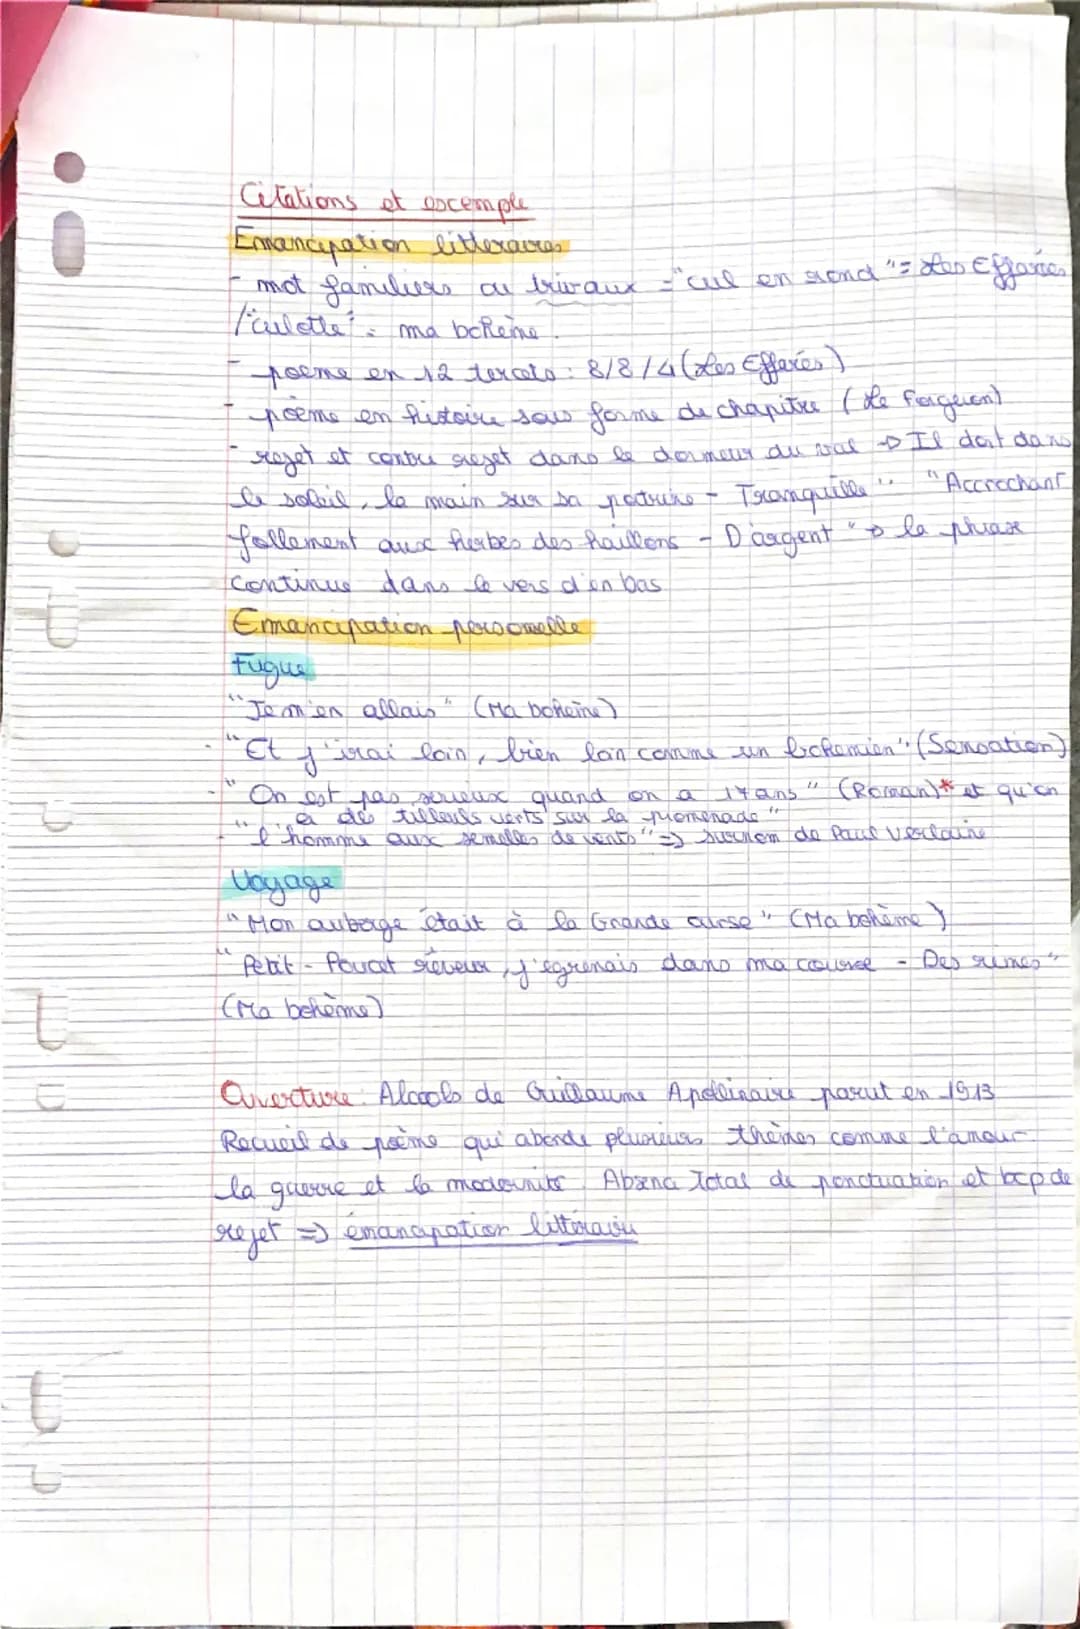 Citations et escemple
Emancipation litteraires
- mot familiers ou triviaux = "cul en rond" = Les Effarés
/"culotte" = ma bohème.
- poème en 12 tercets : 8/8/4 (Les Effarés)
- poème en histoire sous forme de chapitre (Le Forgeron)
- rejet et contre rejet dans le dormeur du val → Il dort dans
le soleil, la main sur sa poitrine - Tranquille" "Accrochant
follement aux herbes des haillons - D'argent" → la phrase
continue dans le vers d'en bas
Emancipation personnelle
Fugue
"Je m'en allais" (Ma bohème)
- "Et j'irai loin, bien loin comme un bohemien". (Sensation)
- "On est pas serieux quand on a 17 ans" (Roman)* et qu'on
a des tilleuls verts sur la promenade"
- "l'homme aux semelles de vents" => surnom de Paul Verlaine
Voyage
"Mon auberge était à la Grande ourse" (Ma bohème)
"Petit - Poucet rêveur, j'égrenais dans ma course - Des rimes"
(Ma bohème)
Ouverture : Alcools de Guillaume Apollinaire parut en 1913
Recueil de poème qui aborde plusieurs thèmes comme l'amour
la guerre et la modernité. Absence Total de ponctuation et bcp de
rejet => émancipation littéraire